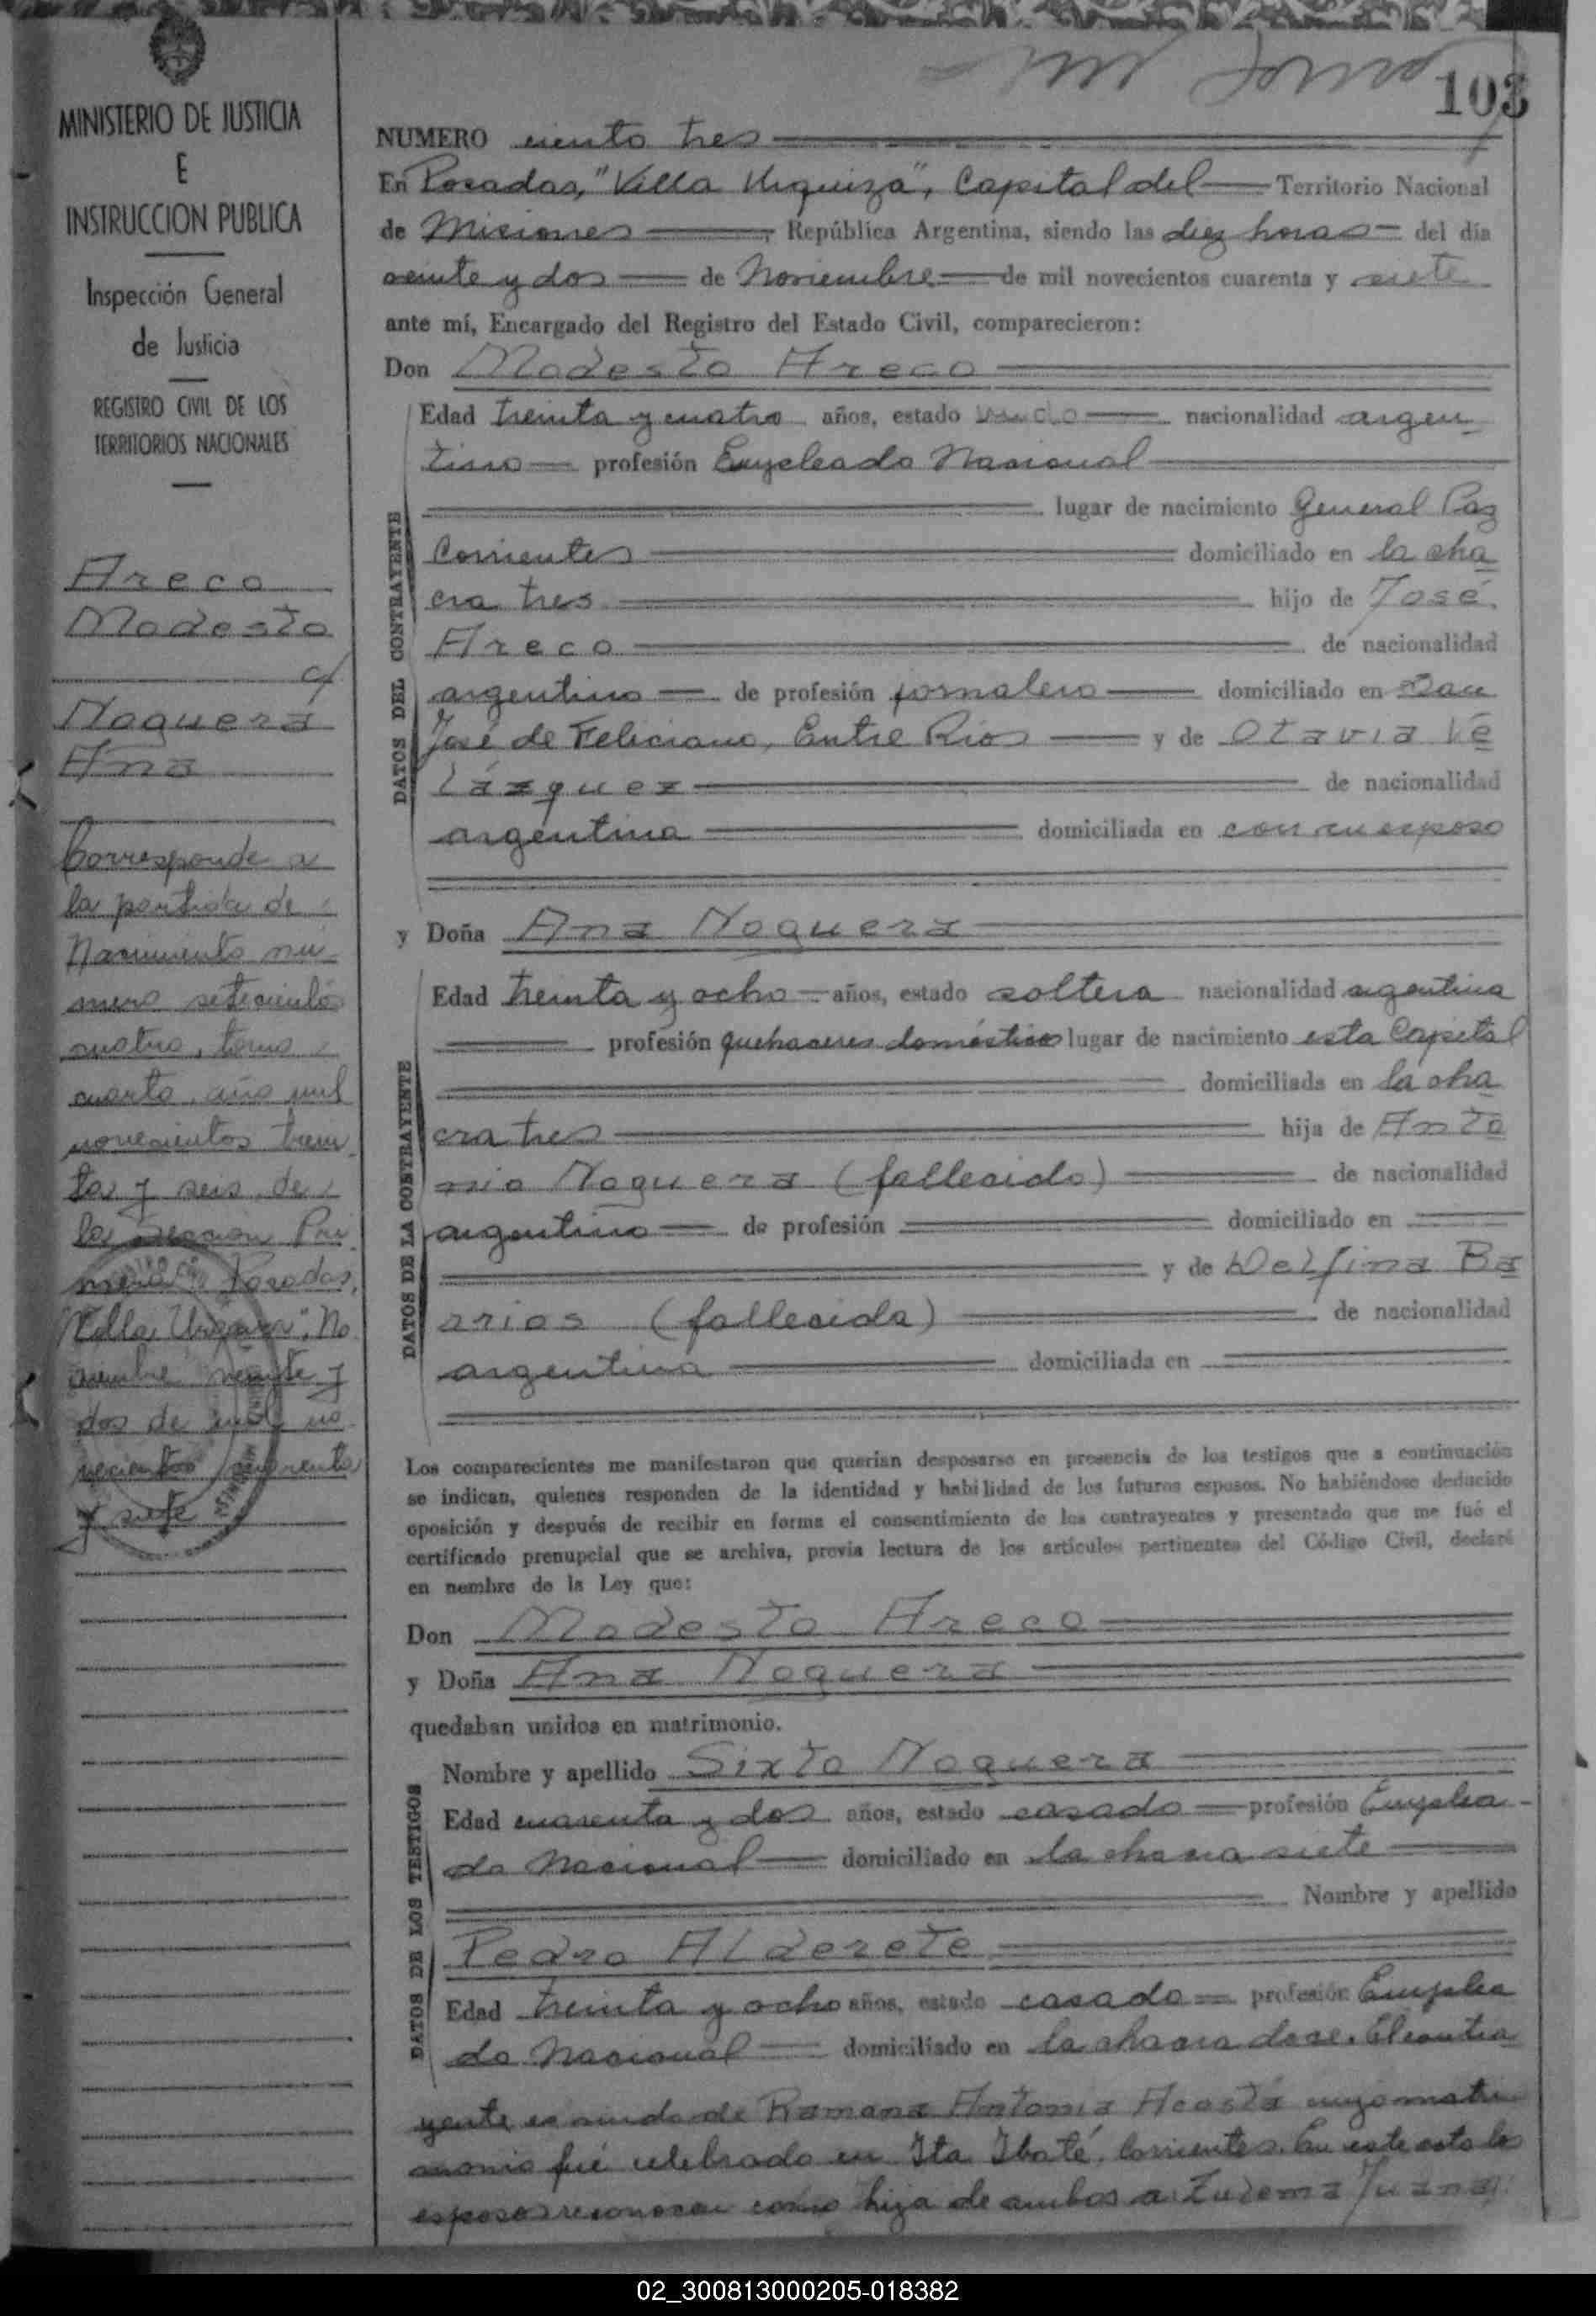 103
MINISTERIO DE JUSTICIA
E
INSTRUCCION PUBLICA
Inspección General
de Justicia
REGISTRO CIVIL DE LOS
TERRITORIOS NACIONALES
Areco
Modesto
c/
Noguera
Ana
Corresponde a
la partida de
Nacimiento nú-
mero setecientos
cuatro, tomo
cuarto, año mil
novecientos trein
ta y seis de
la Sección Pri
mera Posadas,
"Villa Urquiza", No
viembre veinte y
dos de mil no
vecientos cuarenta
y siete
NUMERO ciento tres
En Posadas, "Villa Urquiza", Capital del Territorio Nacional
de Misiones, República Argentina, siendo las diez horas del día
veinte y dos de Noviembre de mil novecientos cuarenta y siete
ante mí, Encargado del Registro del Estado Civil, comparecieron:
Don Modesto Areco
DATOS DEL CONTRAYENTE
Edad treinta y cuatro años, estado viudo nacionalidad argen
tino profesión Empleado Nacional
lugar de nacimiento General Paz
Corrientes domiciliado en la cha
cra tres hijo de José
Areco de nacionalidad
argentino de profesión jornalero domiciliado en San
José de Feliciano, Entre Rios y de Otavia Ve
lázquez de nacionalidad
argentina domiciliada en con su esposo
y Doña Ana Noguera
DATOS DE LA CONTRAYENTE
Edad treinta y ocho años, estado soltera nacionalidad argentina
profesión quehaceres domésticos lugar de nacimiento esta Capital
domiciliada en la cha
cra tres hija de Anto
nio Noguera (fallecido) de nacionalidad
argentino de profesión domiciliado en
y de Delfina Ba
rrios (fallecida) de nacionalidad
argentina domiciliada en
Los comparecientes me manifestaron que querían desposarse en presencia de los testigos que a continuación
se indican, quienes responden de la identidad y habilidad de los futuros esposos. No habiéndose deducido
oposición y después de recibir en forma el consentimiento de los contrayentes y presentado que me fué el
certificado prenupcial que se archiva, previa lectura de los artículos pertinentes del Código Civil, declaré
en nombre de la Ley que:
Don Modesto Areco
y Doña Ana Noguera
quedaban unidos en matrimonio.
DATOS DE LOS TESTIGOS
Nombre y apellido Sixto Noguera
Edad cuarenta y dos años, estado casado profesión Emplea-
do Nacional domiciliado en la chacra siete
Nombre y apellido
Pedro Alderete
Edad treinta y ocho años, estado casado profesión Emplea
do Nacional domiciliado en la chacra doce. El contra
yente es viudo de Ramona Antonia Acosta cuyo matri
monio fué celebrado en Ita Ibaté, Corrientes. En este acto los
esposos reconocen como hija de ambos a Zulema Juana
02_300813000205-018382